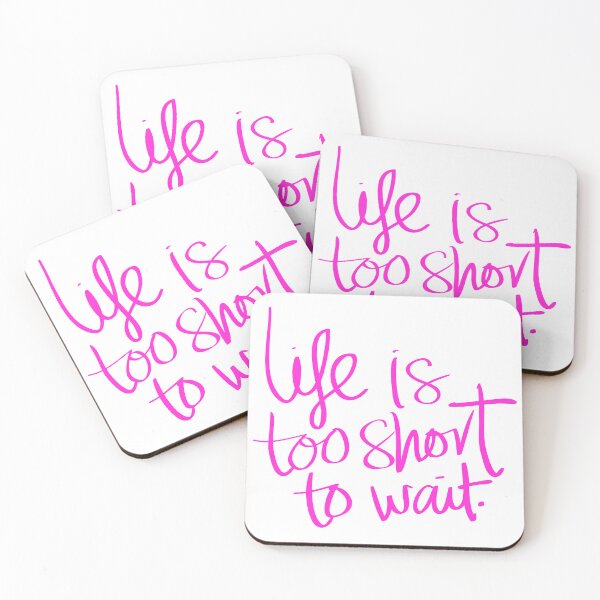 Life is
Life is
too short
Life is
too short
to
Life is
too short
to wait.